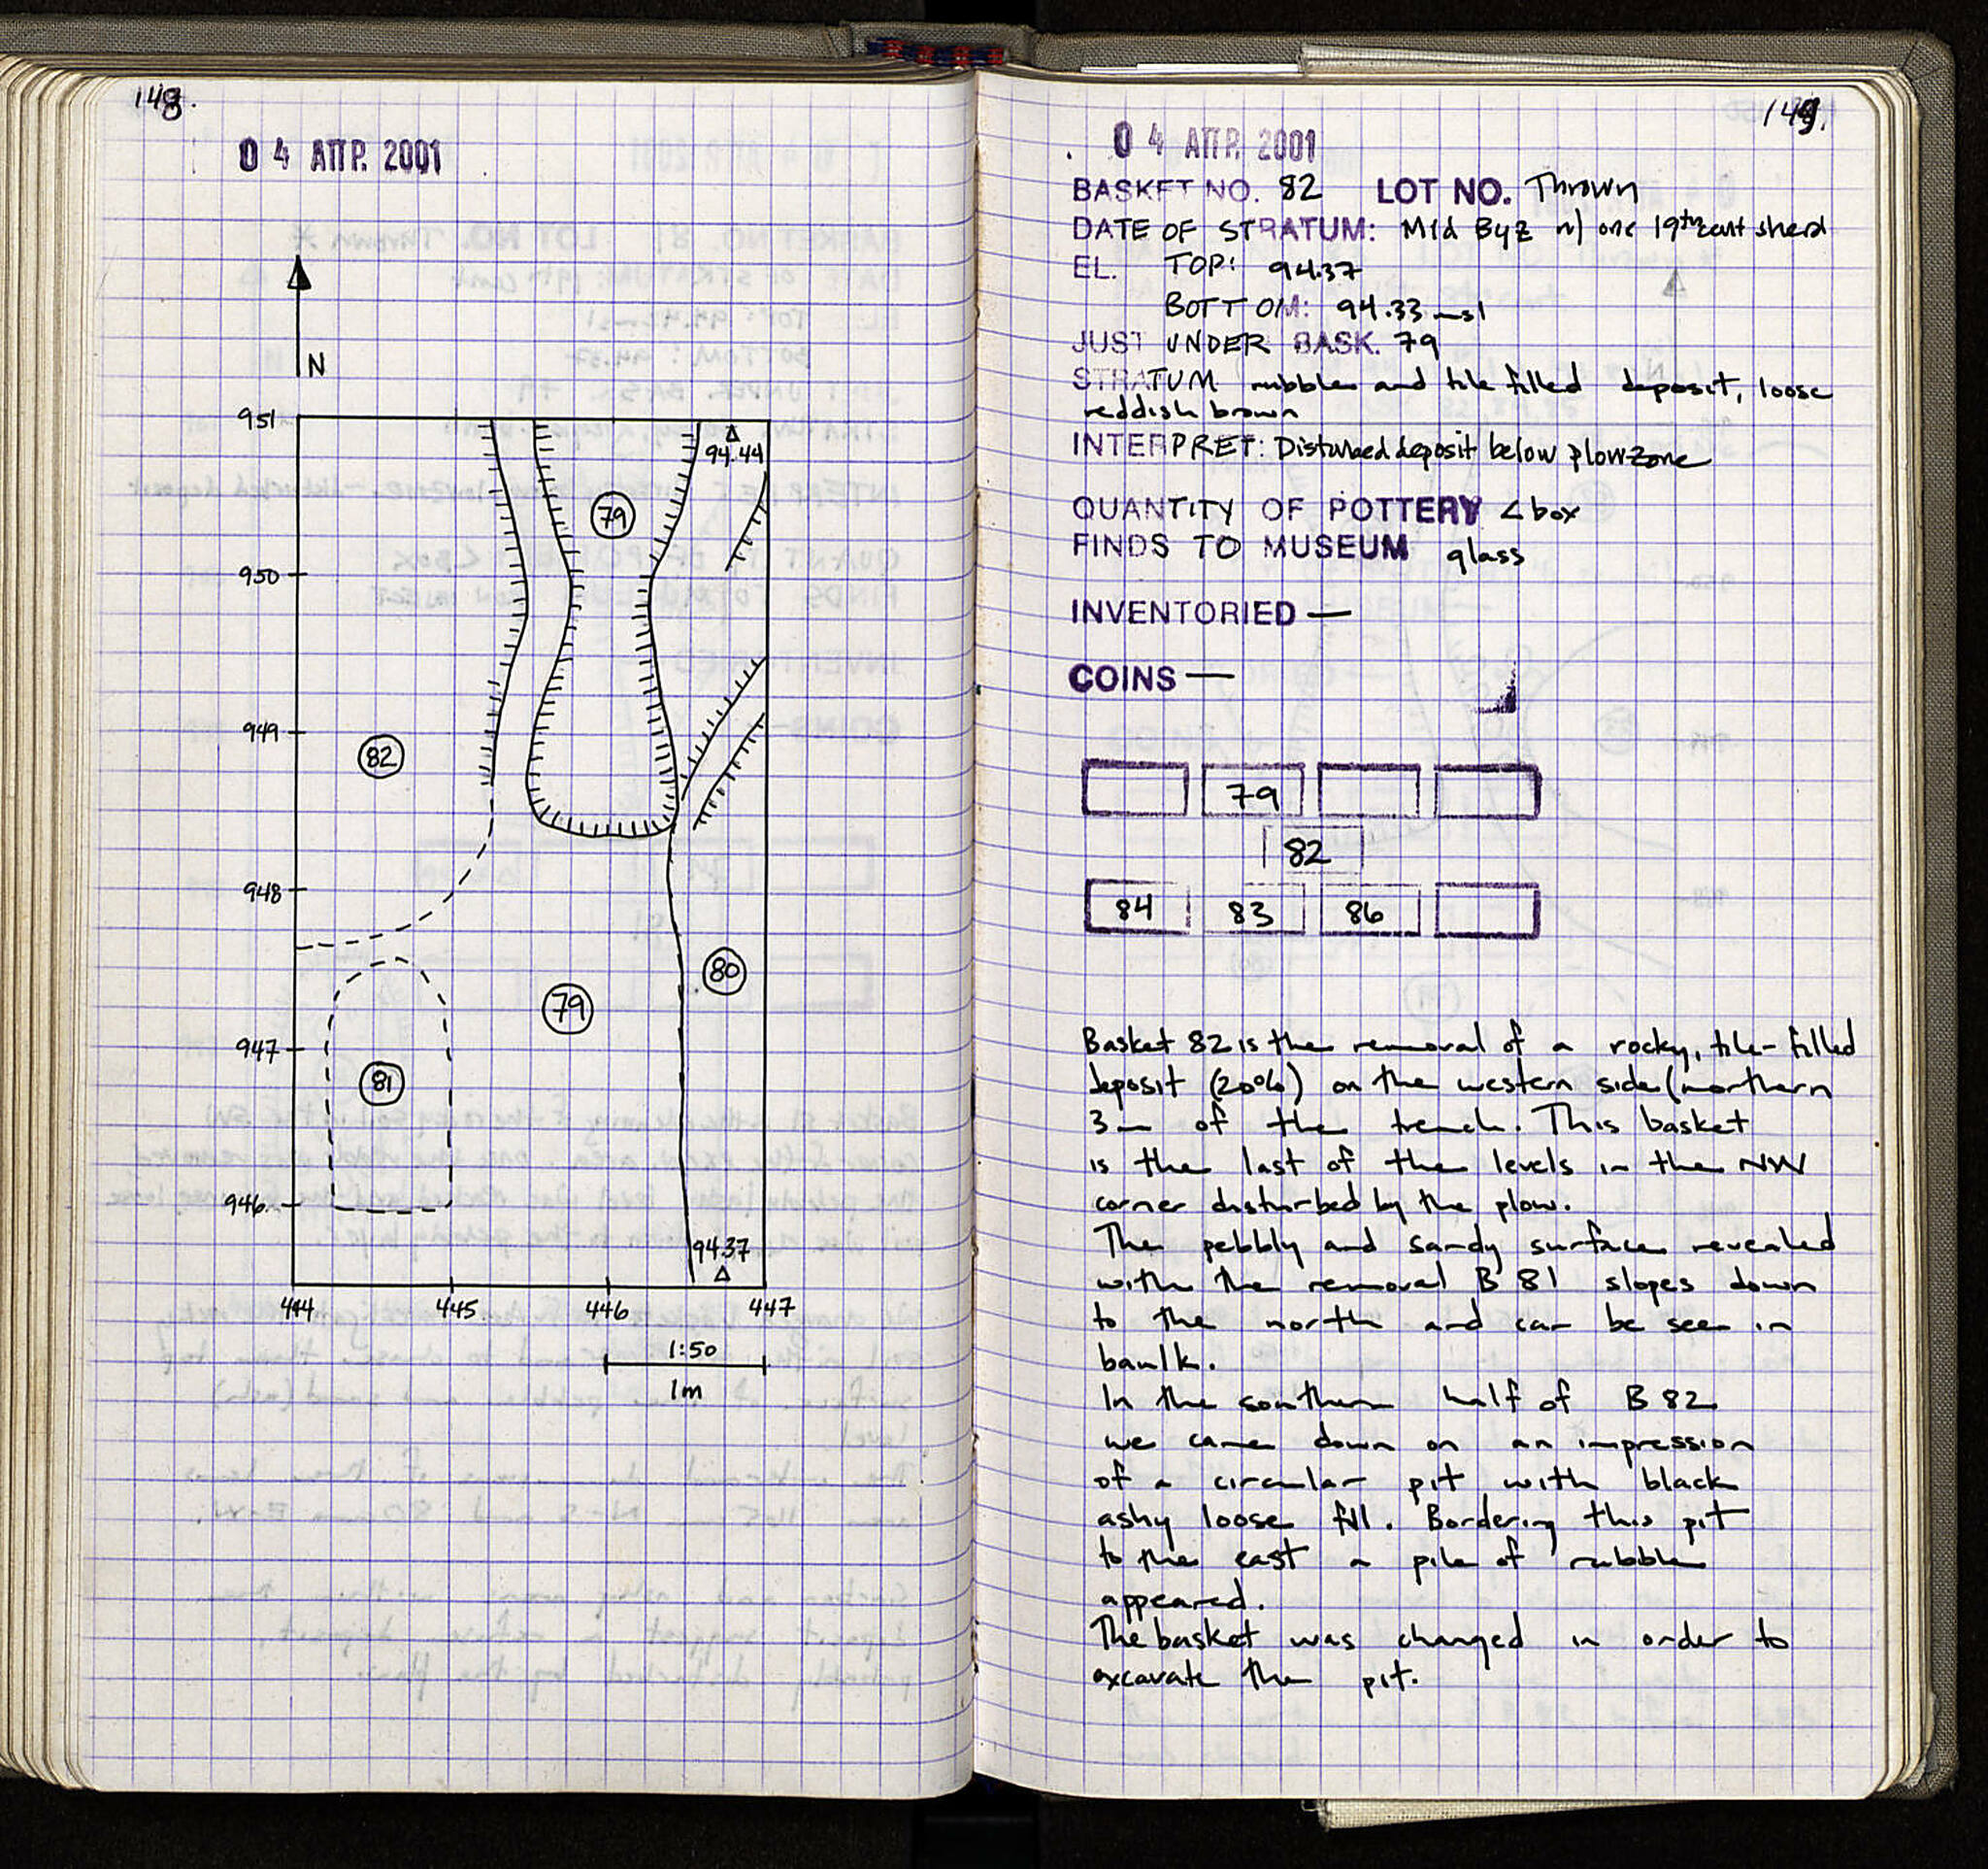 148.
04 ΑΠΡ. 2001
N
951
950
949
948
947
946
444 445 446 447
94.44
79
82
80
79
81
94.37
1:50
1m
149.
04 ΑΠΡ. 2001
BASKET NO. 82 LOT NO. Thrown
DATE OF STRATUM: Mid Byz w/ one 19th cent sherd
EL. TOP: 94.37
BOTTOM: 94.33 msl
JUST UNDER BASK. 79
STRATUM rubble and tile filled deposit, loose
reddish brown
INTERPRET: Disturbed deposit below plowzone
QUANTITY OF POTTERY < box
FINDS TO MUSEUM glass
INVENTORIED —
COINS —
79
82
84 83 86
Basket 82 is the removal of a rocky, tile-filled
deposit (20%) on the western side (northern
3m of the trench. This basket
is the last of the levels in the NW
corner disturbed by the plow.
The pebbly and sandy surface revealed
with the removal B 81 slopes down
to the north and can be seen in
baulk.
In the southern half of B 82
we came down on an impression
of a circular pit with black
ashy loose fill. Bordering this pit
to the east a pile of rubble
appeared.
The basket was changed in order to
excavate the pit.